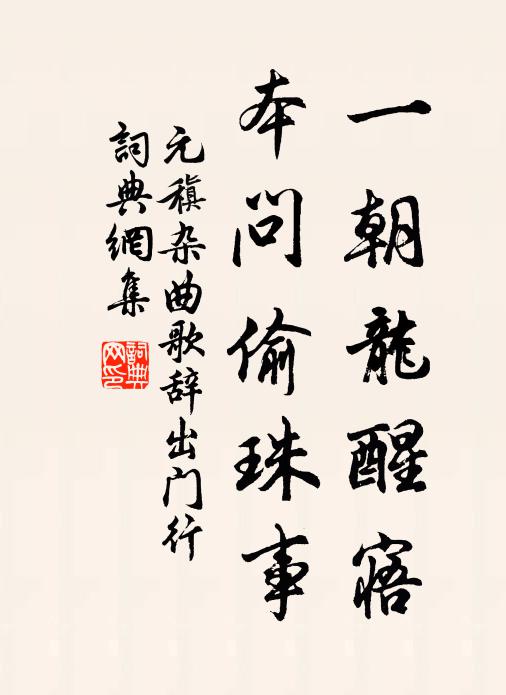 一朝龍醒寤
本問偷珠事
元稹杂曲歌辞出门行
詞典網集
詞典网印